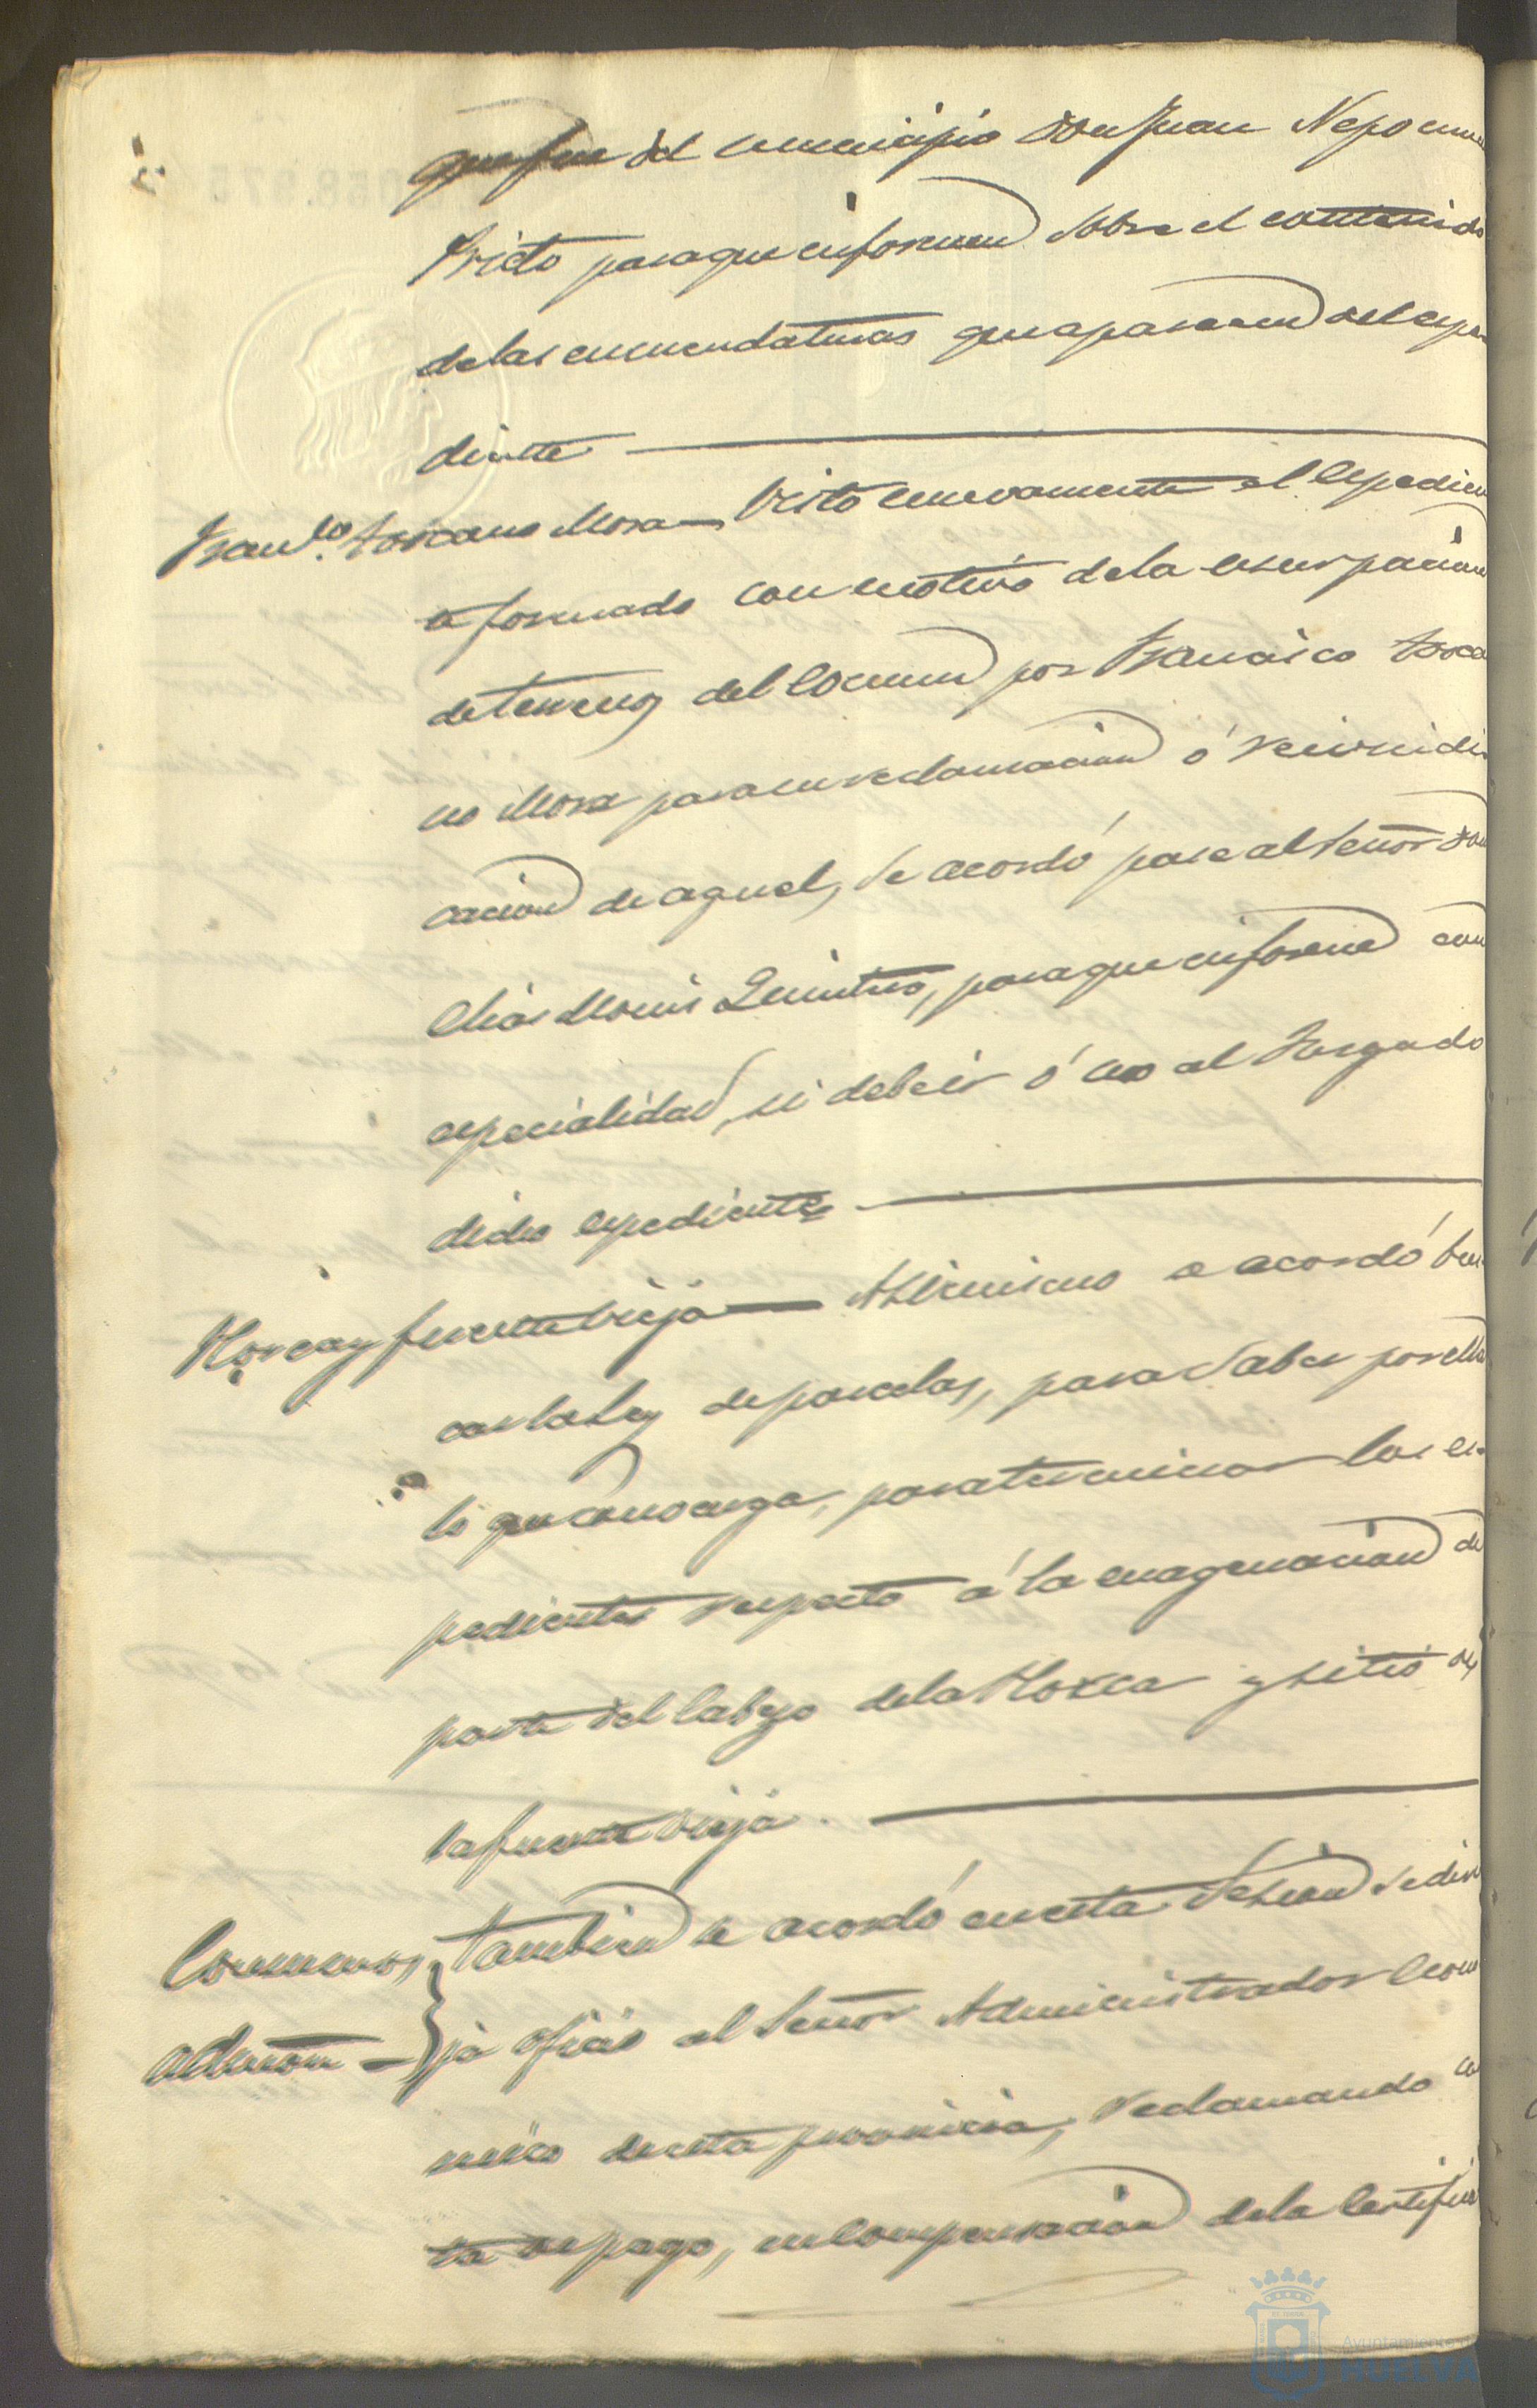 que fue del municipio Don Juan Nepomu
Prieto para que informen sobre el contenido
de las enmendaturas que aparecen del espe
diente
Fran.co Toscano Mora — Visto nuevamente el Espedien
te formado con motivo de la usurpacion
de terrenos del Comun por Francisco Tosca
no Mora para su reclamacion ó reivindi
cacion de aquel, se acordó pase al Señor Don
Elias Monis Quintero, para que informe con
especialidad, si debe ir ó no al Juzgado
dicho espediente
Horca y fuente vieja — Asimismo se acordó bus
car la Ley de parcelas, para saber por ella
lo que convenga, para terminar los es
pedientes respecto á la enagenacion de
parte del Cabezo de la Horca y sitio de
la fuente vieja
Comunos, También se acordó en esta Sesion se diri
admon — ja oficio al Señor Administrador Econo
mico de esta provincia, reclamando car
ta de pago, en compensacion de la Certifica
Ayuntamiento de
HUELVA